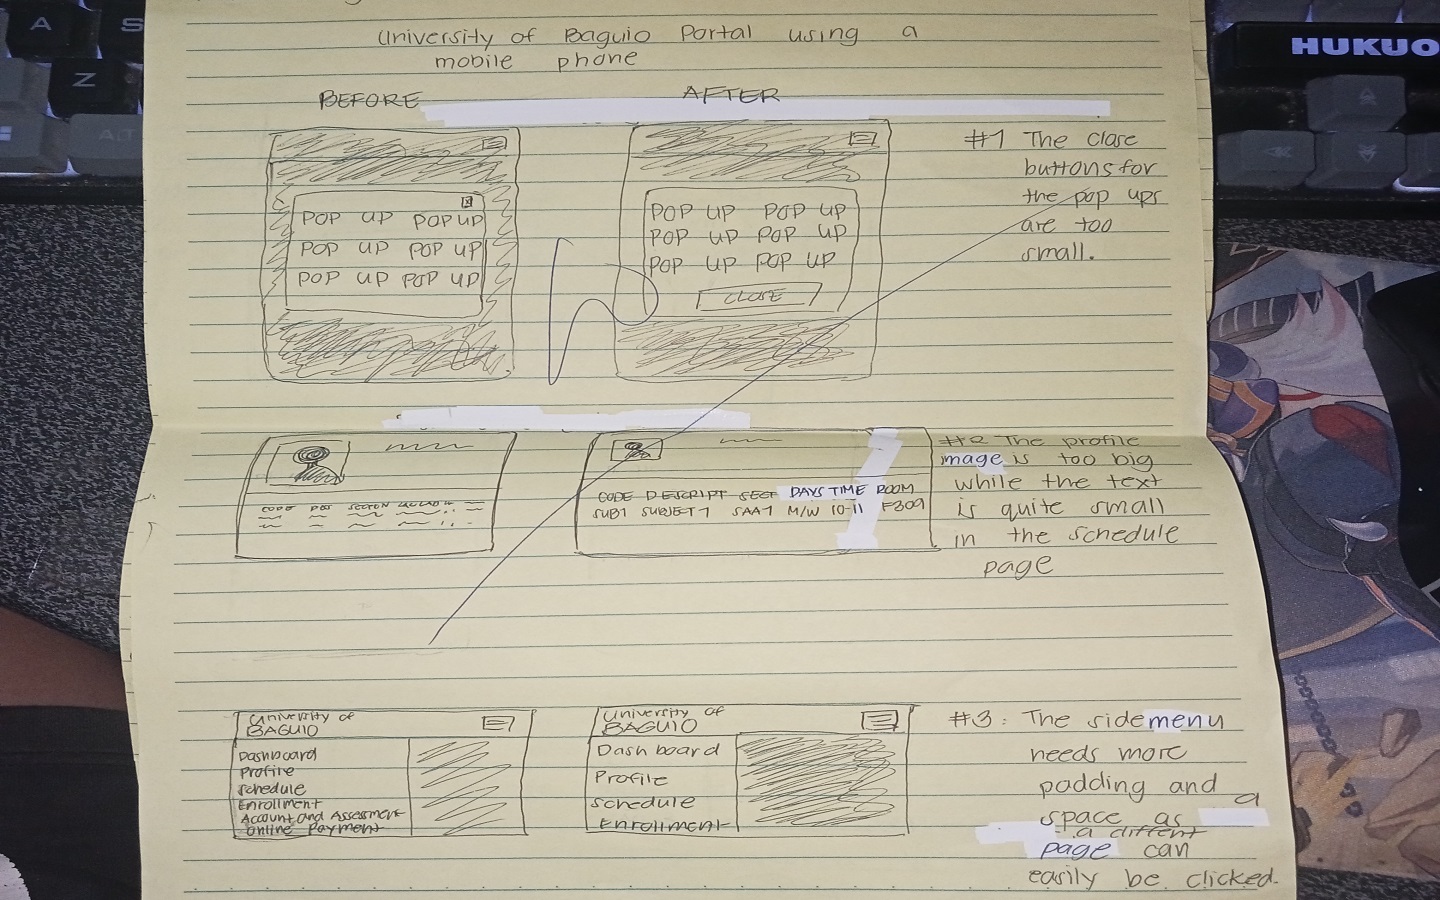 University of Baguio Portal using a
mobile phone
BEFORE
AFTER
POP UP POP UP
POP UP POP UP
POP UP POP UP
POP UP POP UP
POP UP POP UP
POP UP POP UP
CLOSE
#1 The close
buttons for
the pop ups
are too
small.
CODE
CODE DESCRIPT SECT DAYS TIME ROOM
SUB1 SUBJECT 1 SAA1 M/W 10-11 F309
#2 The profile
mage is too big
while the text
is quite small
in the schedule
page
University of
BAGUIO
Dashboard
Profile
Schedule
Enrollment
Account and Assessment
online Payment
University of
BAGUIO
Dashboard
Profile
Schedule
Enrollment
#3: The sidemenu
needs more
padding and
space as a
a different
page can
easily be clicked.
A
S
Z
ALT
HUKUO